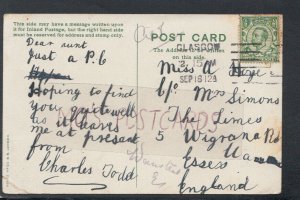 This side may have a message written upon
it for Inland Postage, but the right hand side
must be reserved for address and stamp only.
POST CARD
The address to be written
on this side.
GLASGOW
2.15 PM
SEP 18 12
Dear Aunt
Just a P.C
Hoping to find
you quite well
as it leaves
me at present
from
Charles Todd
Miss
C/o Mrs Simons
The Limes
5 Wigram Rd
Essex
England
Wanstead
E